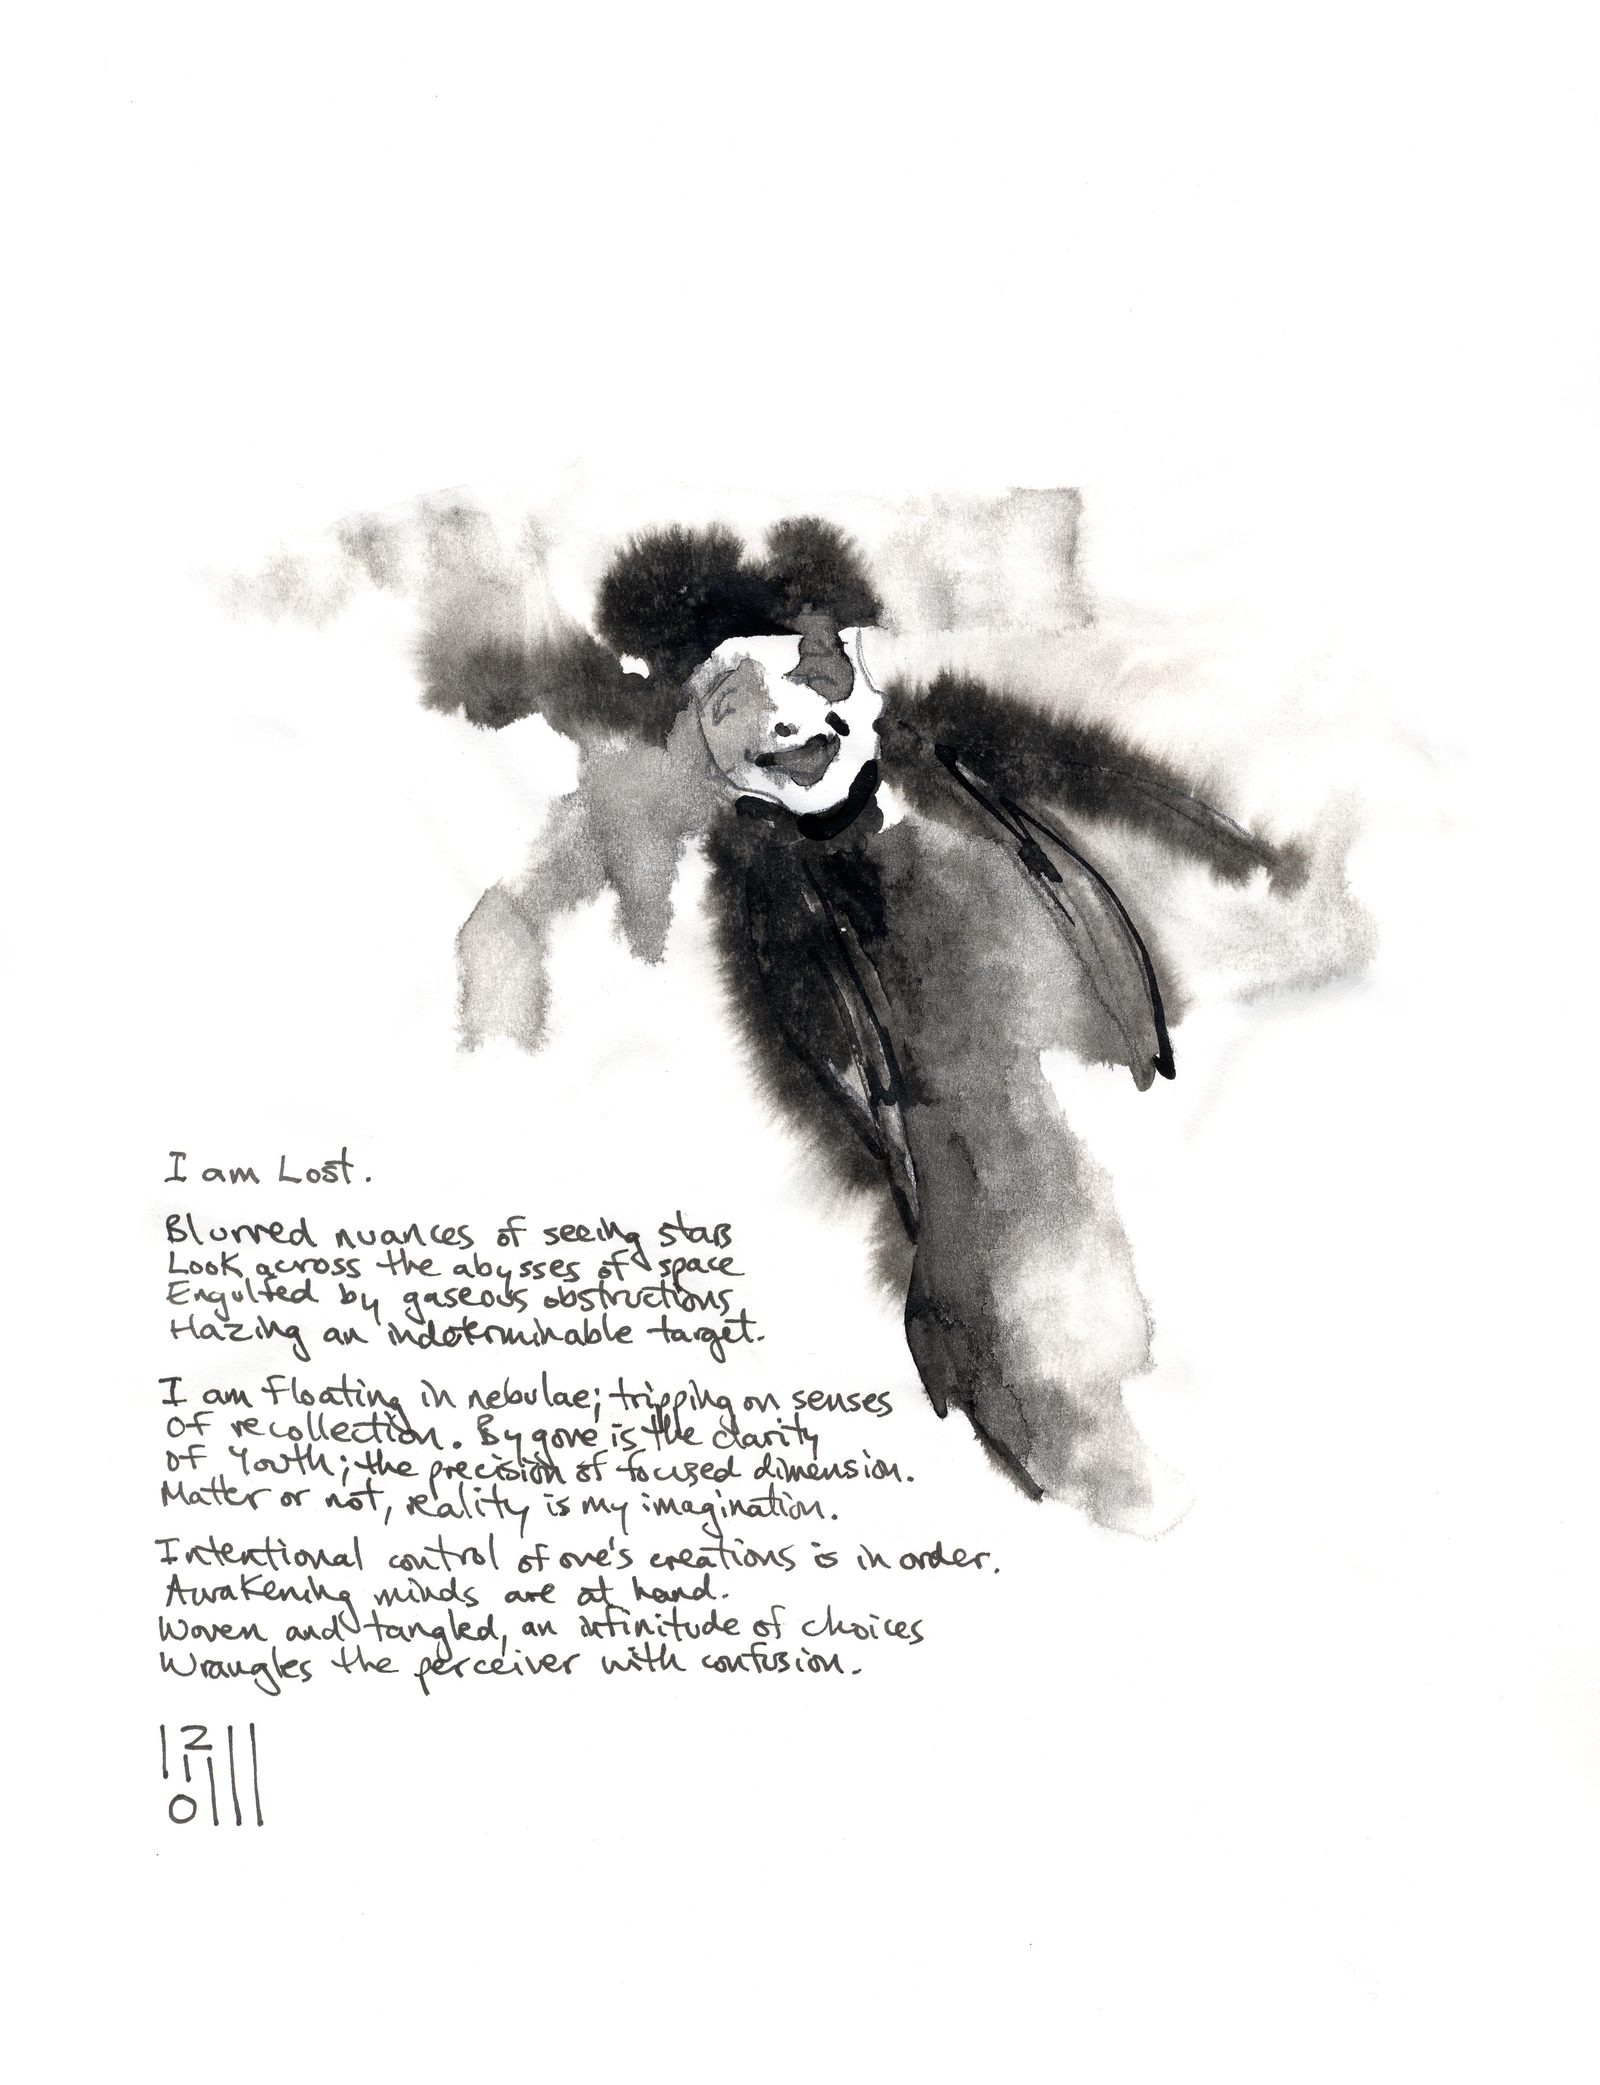 I am Lost.
Blurred nuances of seeing stars
Look across the abysses of space
Engulfed by gaseous obstructions
Hazing an indeterminable target.
I am floating in nebulae; tripping on senses
Of recollection. Bygone is the clarity
of Youth; the precision of focused dimension.
Matter or not, reality is my imagination.
Intentional control of one's creations is in order.
Awakening minds are at hand.
Woven and tangled, an infinitude of choices
Wrangles the perceiver with confusion.